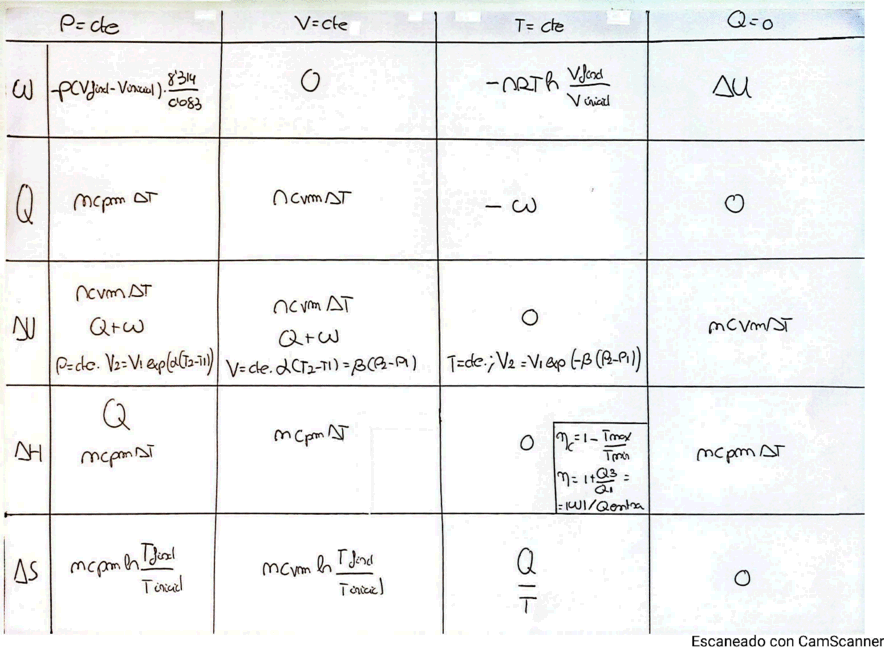 P=cte V=cte T=cte Q=0
W -P(Vfinal-Vinicial)·8'314/0'083 0 -nRT ln Vfinal/Vinicial ΔU
Q ncpm ΔT ncvm ΔT -W 0
ΔU ncvm ΔT ncvm ΔT 0 ncvmΔT
Q+W Q+W
P=cte. V2=V1 exp(α(T2-T1)) V=cte. α(T2-T1)=β(P2-P1) T=cte.; V2=V1 exp(-β(P2-P1))
ΔH Q ncpm ΔT 0 ncpm ΔT
ncpm ΔT
ηc=1-Tmax/Tmin
η=1+Q3/Q1=
=|W|/Qentra
ΔS ncpm ln Tfinal/Tinicial ncvm ln Tfinal/Tinicial Q/T 0
Escaneado con CamScanner